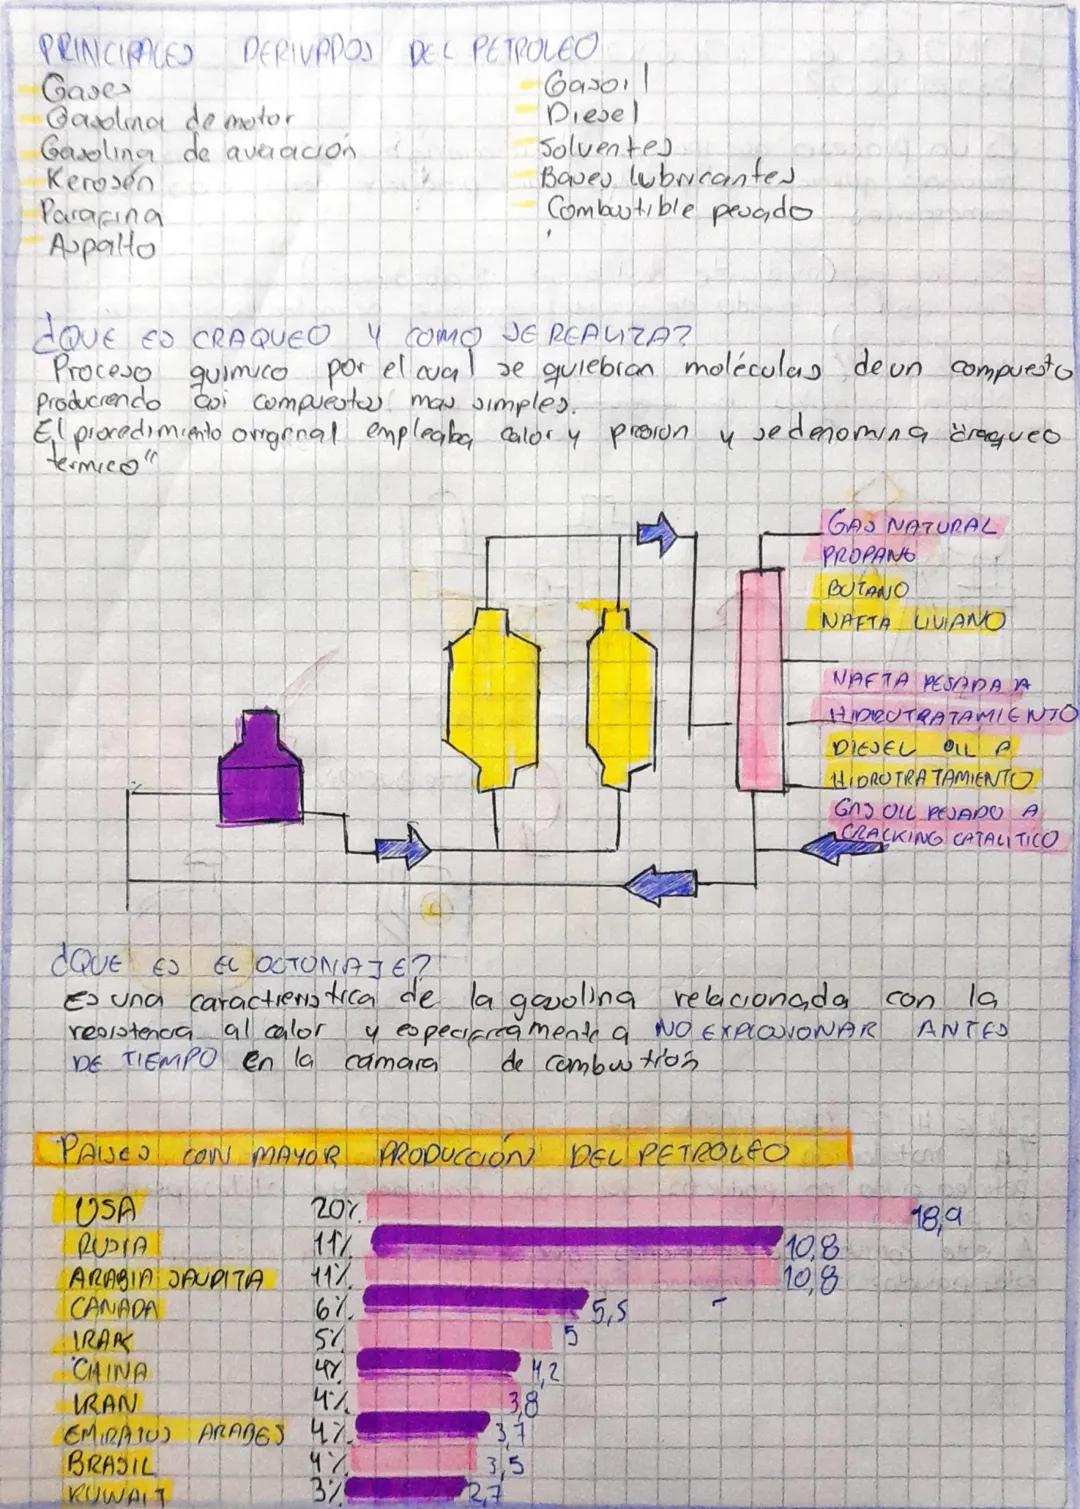 PRINCIPALES DERIVADOS DEL PETROLEO
Gases
Gasolina de motor
Gasolina de aviación
Kerosén
Parafina
Aspalto
Gasoil
Diesel
Solventes
Bases lubricantes
Combustible pesado
¿QUE ES CRAQUEO Y COMO SE REALIZA?
Proceso quimico por el cual se quiebran moléculas de un compuesto
Produciendo asi compuestos mas simples.
El procedimiento original empleaba calor y presion y se denomina "craqueo
termico"
GAS NATURAL
PROPANO
BUTANO
NAFTA LIVIANO
NAFTA PESADA A
HIDROTRATAMIENTO
DIESEL OIL A
HIDROTRATAMIENTO
GAS OIL PESADO A
CRACKING CATALITICO
¿QUE ES EL OCTONAJE?
Es una caractieristica de la gasolina relacionada con la
resistencia al calor y especificamente a NO EXPLOSIONAR ANTES
DE TIEMPO en la cámara de combustión
PAISES CON MAYOR PRODUCCIÓN DEL PETROLEO
USA 20% 18,9
RUSIA 11% 10,8
ARABIA SAUDITA 11% 10,8
CANADA 6% 5,5
IRAK 5% 5
CHINA 4% 4,2
IRAN 4% 3,8
EMIRATOS ARABES 4% 3,7
BRASIL 4% 3,5
KUWAIT 3% 2,7